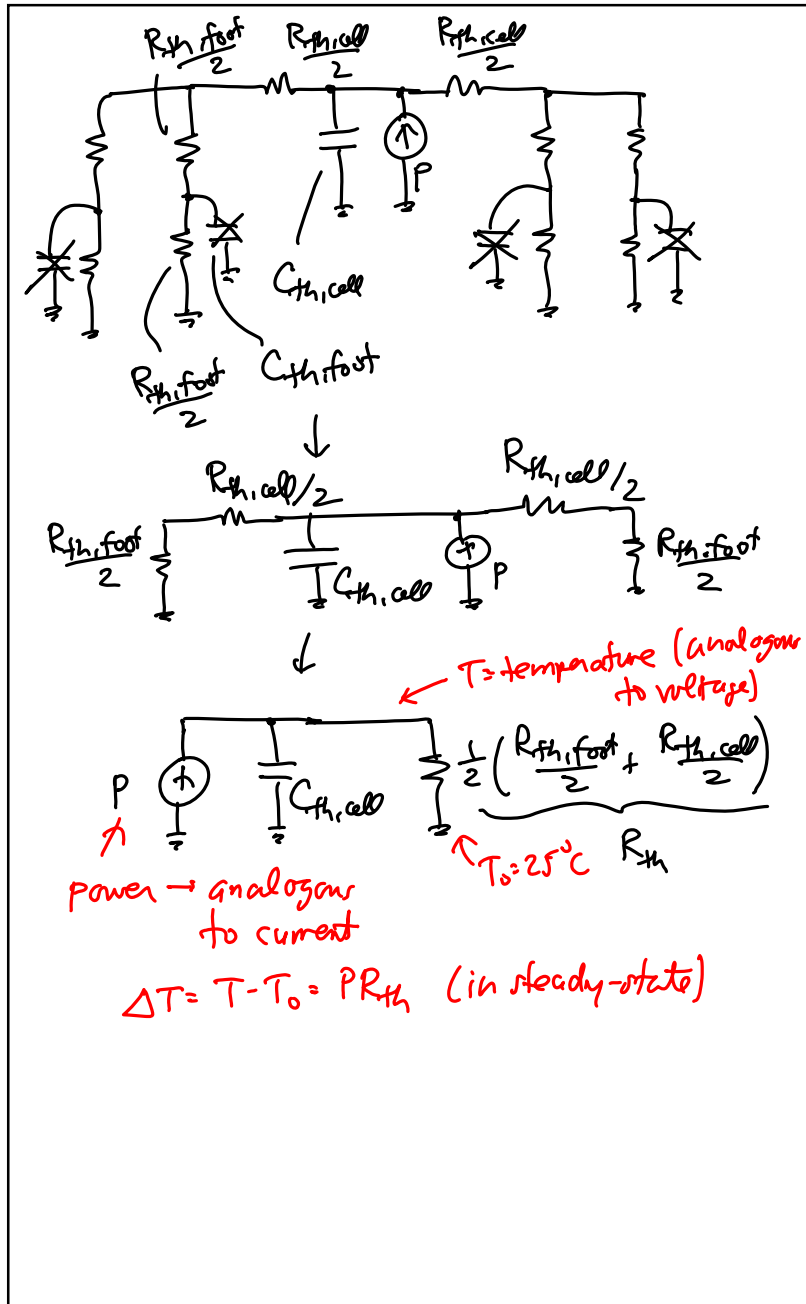 R_th,foot/2 R_th,cell/2 R_th,cell/2
P
C_th,cell
R_th,foot/2 C_th,foot
R_th,cell/2 R_th,cell/2
R_th,foot/2 C_th,cell P R_th,foot/2
T=temperature (analogous
to voltage)
P C_th,cell 1/2 (R_th,foot/2 + R_th,cell/2)
T₀=25°C R_th
power → analogous
to current
ΔT= T-T₀= PR_th (in steady-state)